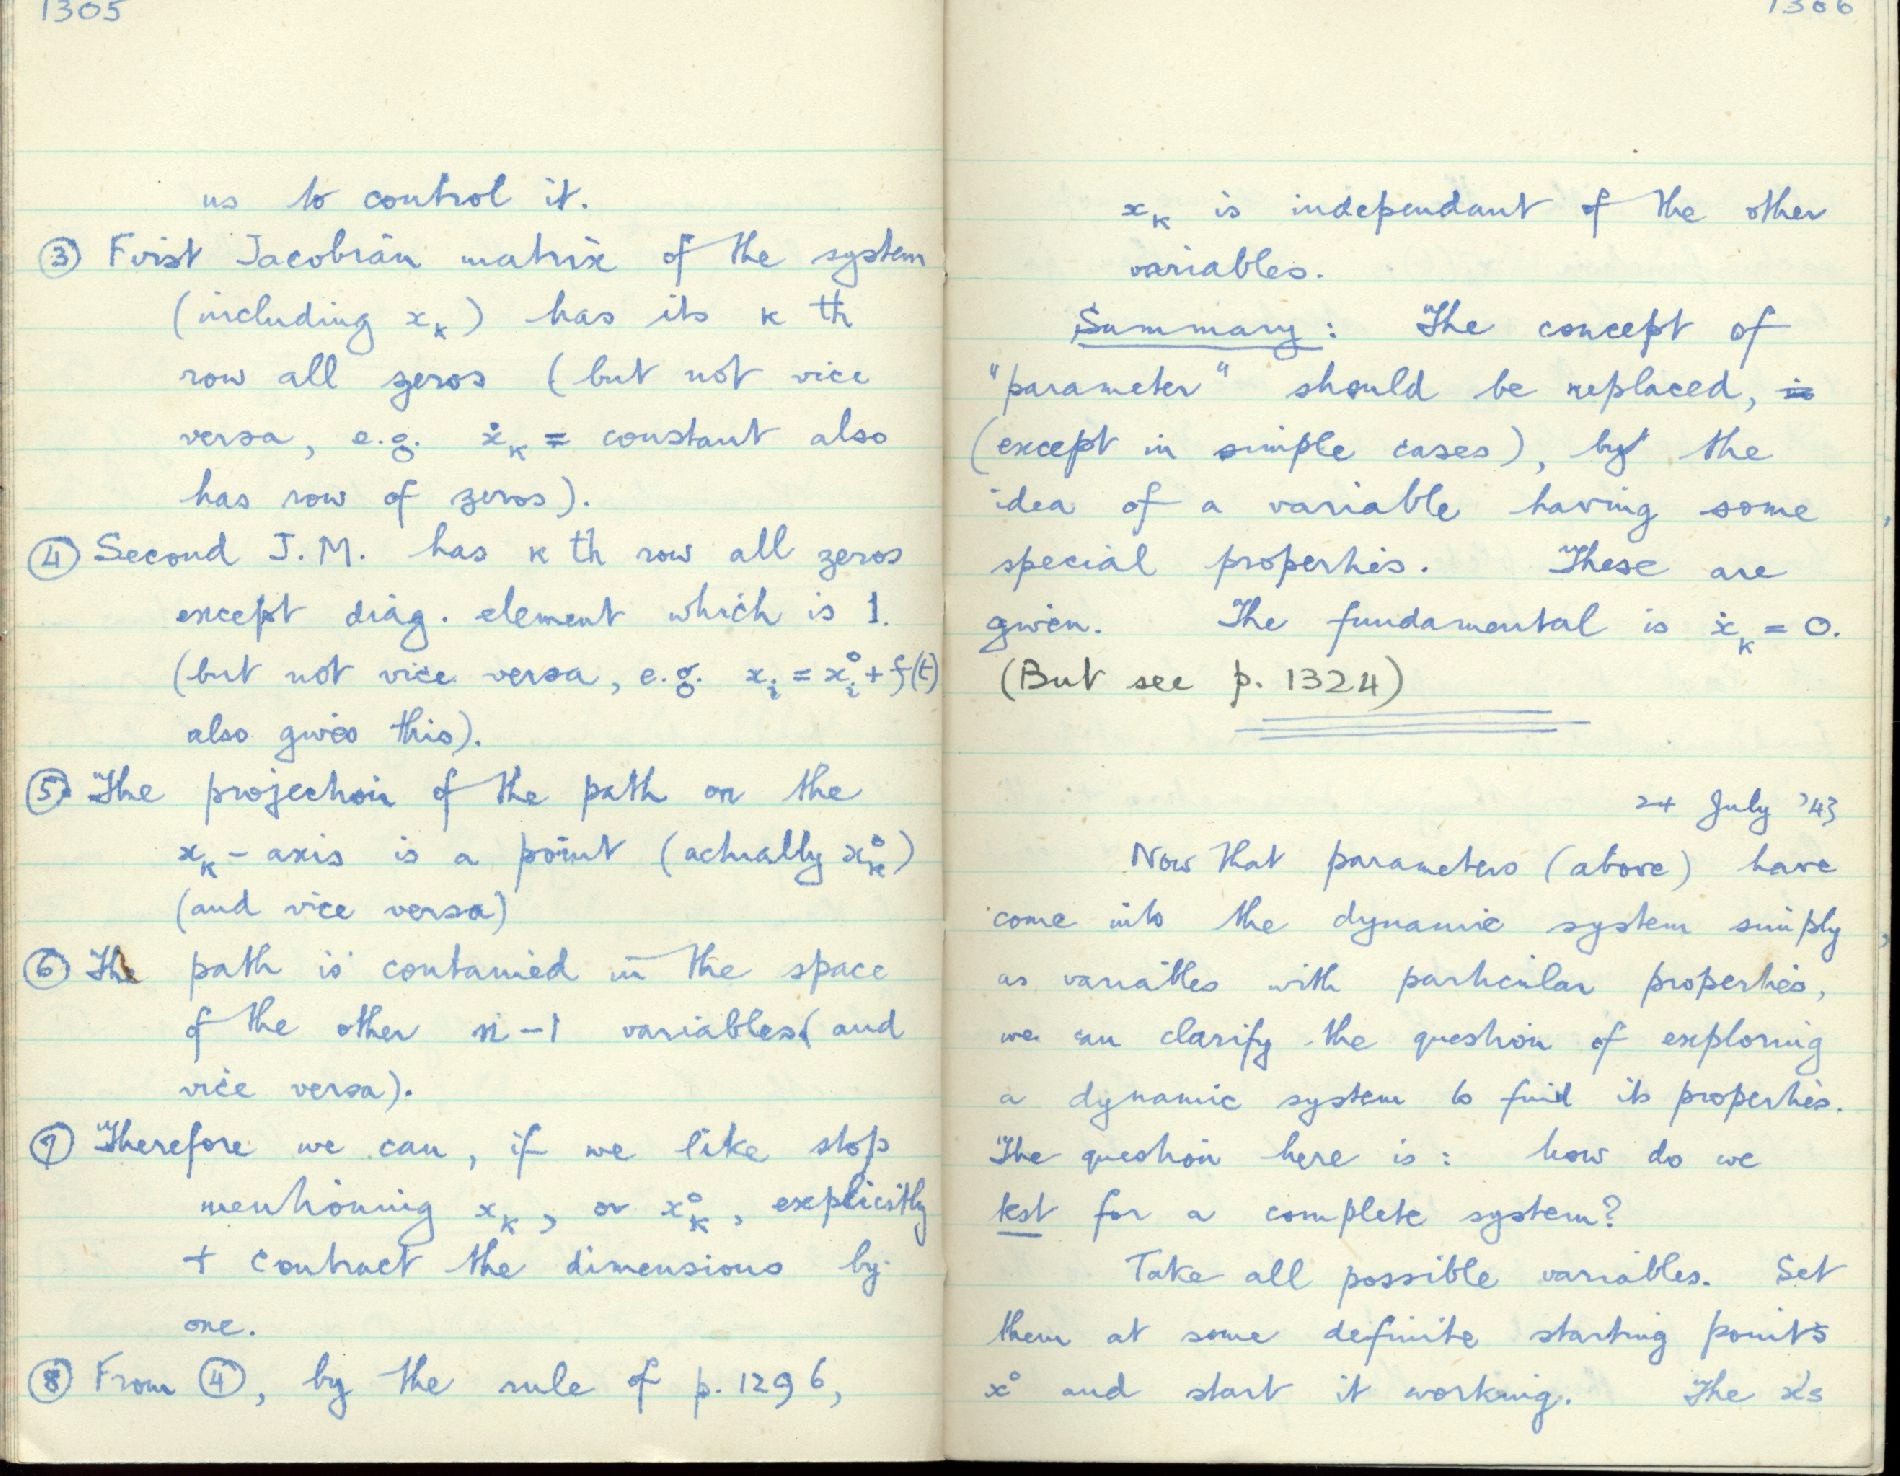 1305
us to control it.
③ First Jacobian matrix of the system
(including xₖ) has its k th
row all zeros (but not vice
versa, e.g. ẋₖ = constant also
has row of zeros).
④ Second J.M. has k th row all zeros
except diag. element which is 1.
(but not vice versa, e.g. xᵢ = xᵢ⁰ + f(t)
also gives this).
⑤ The projection of the path on the
xₖ - axis is a point (actually xₖ⁰)
(and vice versa)
⑥ The path is contained in the space
of the other n-1 variables (and
vice versa).
⑦ Therefore we can, if we like stop
mentioning xₖ, or xₖ⁰, explicitly
+ contract the dimensions by
one.
⑧ From ④, by the rule of p. 1296,
1306
xₖ is independant of the other
variables.
Summary: The concept of
"parameter" should be replaced, is
(except in simple cases), by the
idea of a variable having some
special properties. These are
given. The fundamental is ẋₖ = 0.
(But see p. 1324)
24 July '43
Now that parameters (above) have
come into the dynamic system simply
as variables with particular properties,
we can clarify the question of exploring
a dynamic system to find its properties.
The question here is: how do we
test for a complete system?
Take all possible variables. Set
them at some definite starting points
x⁰ and start it working. The x's